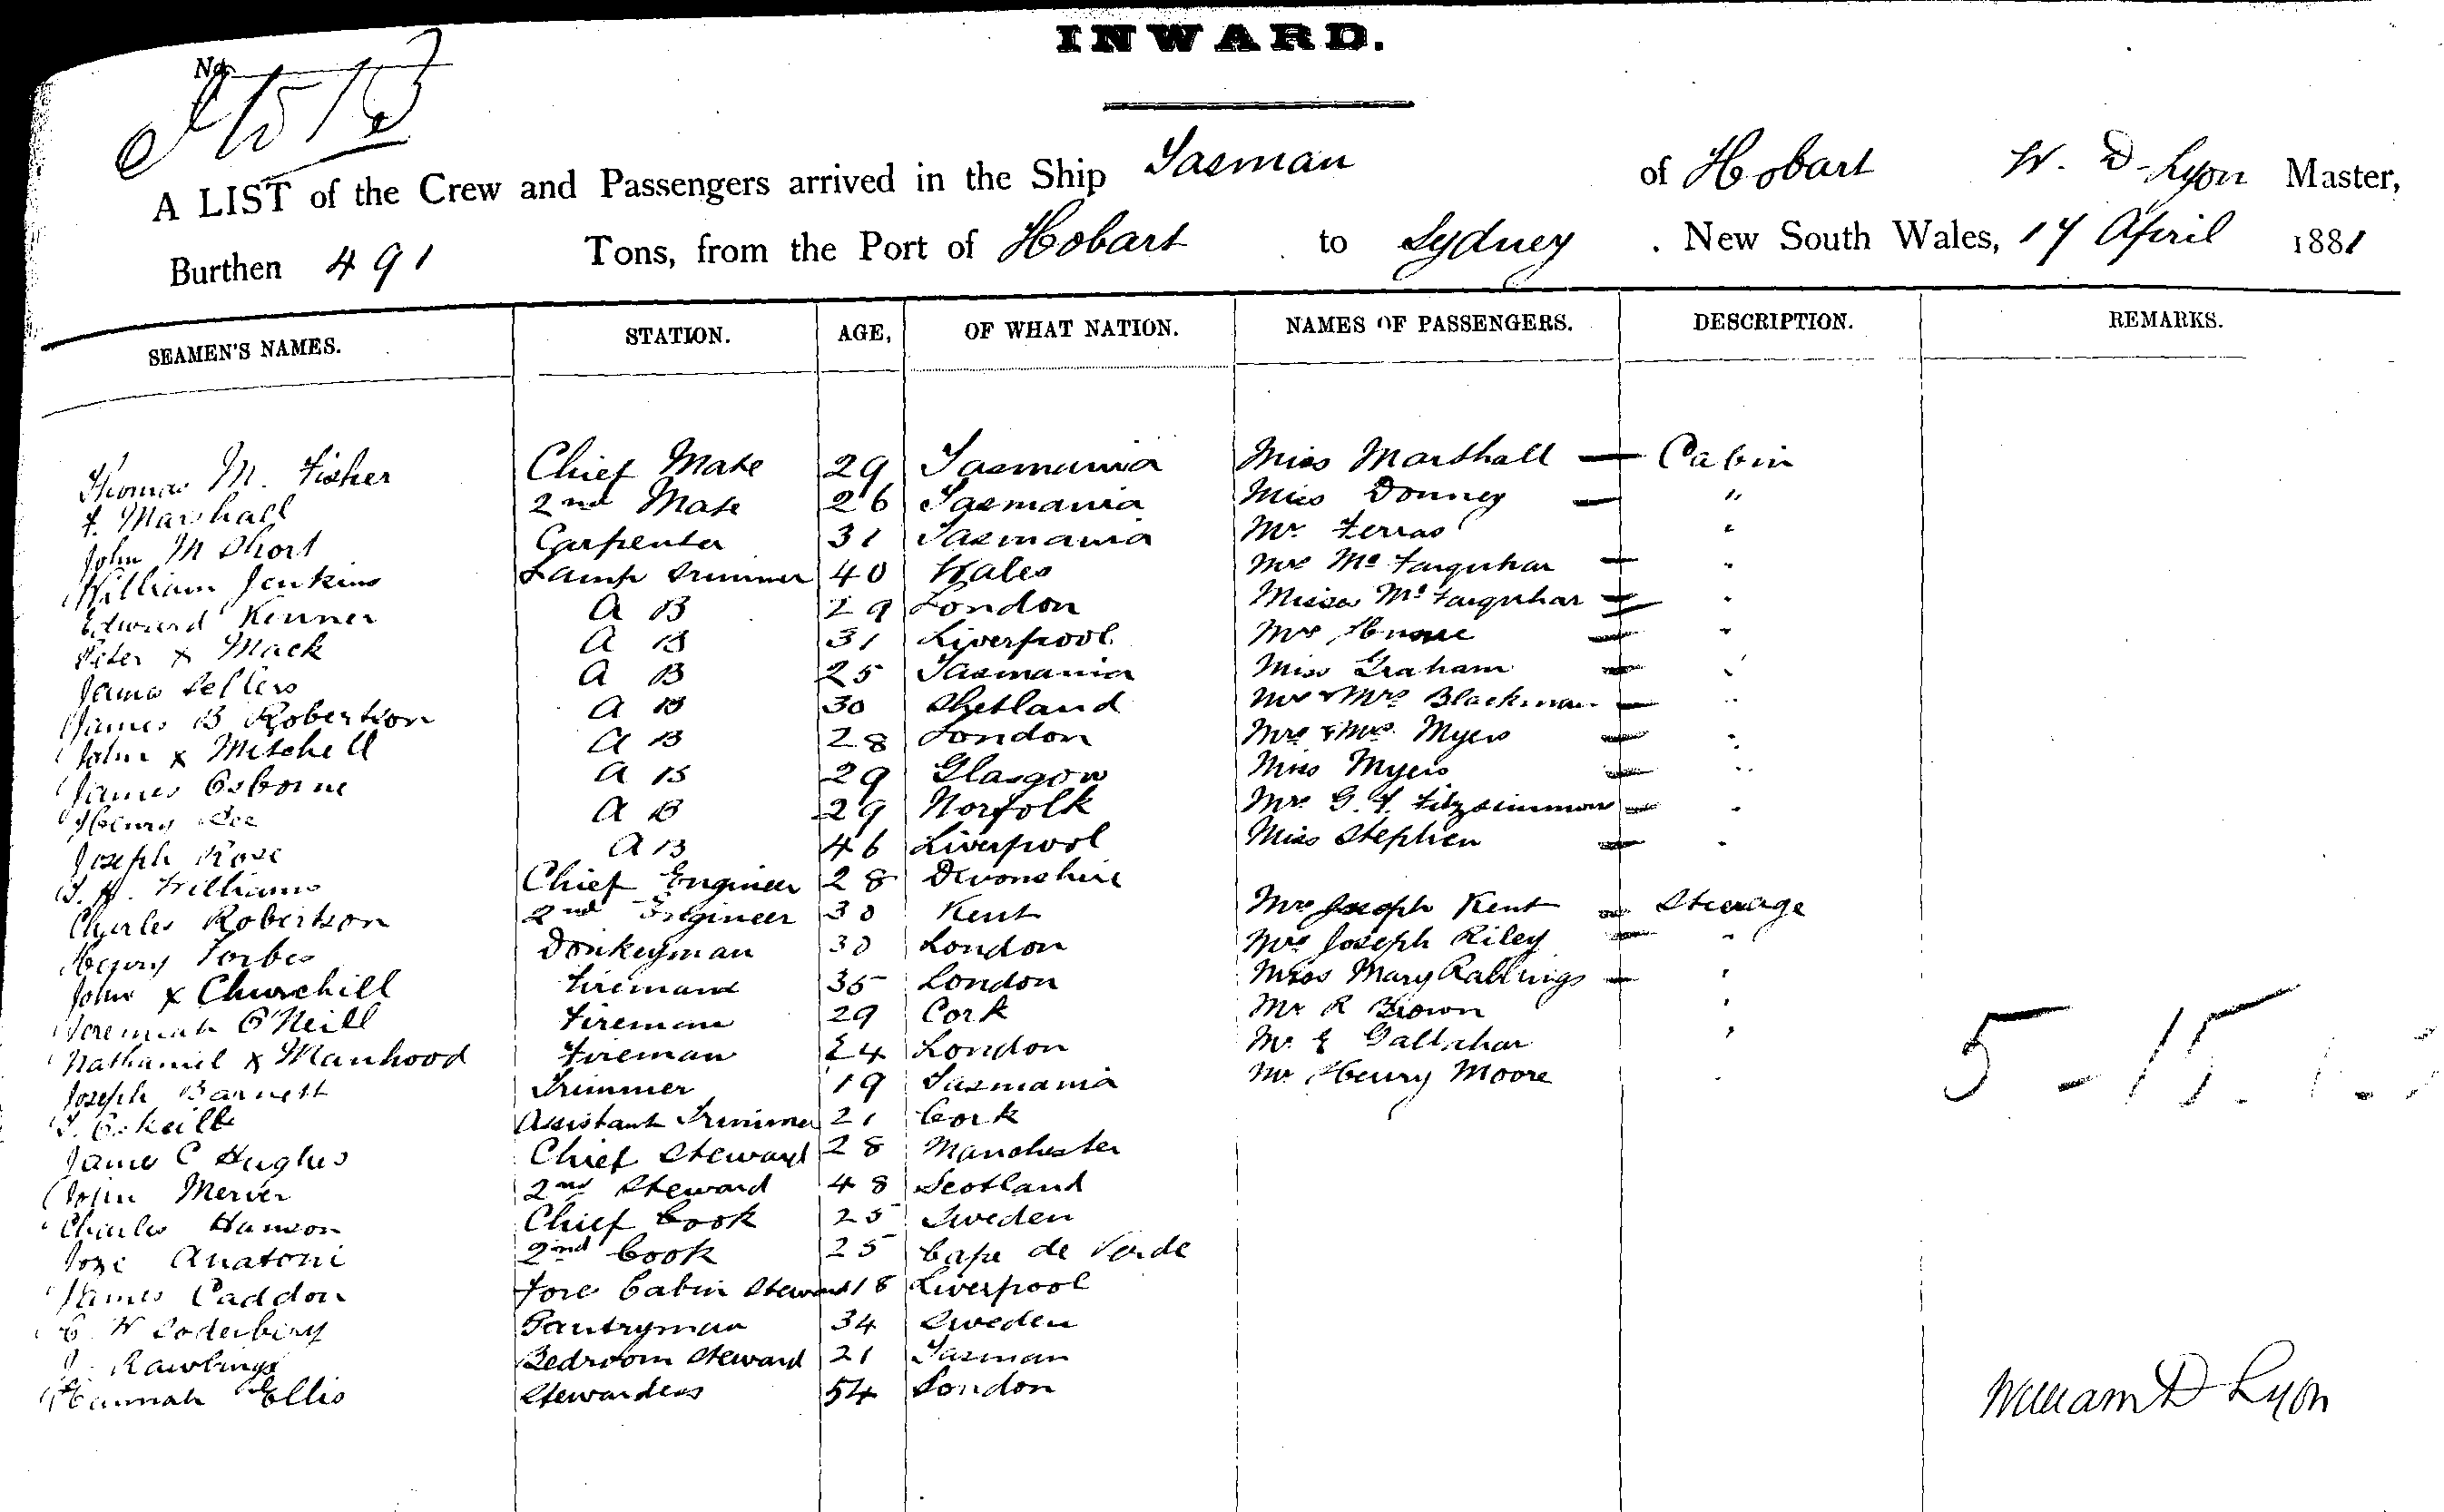 INWARD.
No.
A LIST of the Crew and Passengers arrived in the Ship Tasman of Hobart W. D. Lyon Master,
Burthen 491 Tons, from the Port of Hobart to Sydney . New South Wales, 17 April 1881
SEAMEN'S NAMES. STATION. AGE, OF WHAT NATION. NAMES OF PASSENGERS. DESCRIPTION. REMARKS.
Thomas M. Fisher Chief Mate 29 Tasmania Miss Marshall — Cabin
F. Marshall 2nd Mate 26 Tasmania Miss Donney — "
John M Short Carpenter 31 Tasmania Mr. Ferras "
William Jenkins Lamp Trimmer 40 Wales Mrs Mc Farquhar — "
Edward Kenner A B 29 London Misses Mc Farquhar — "
Peter x Mack A B 31 Liverpool Mrs Hume — "
James Sellers A B 25 Tasmania Miss Graham — "
James B Robertson A B 30 Shetland Mr & Mrs Blackman — "
John x Mitchell A B 28 London Mrs & Miss Myers — "
James Osborne A B 29 Glasgow Miss Myers — "
Henry Lee A B 29 Norfolk Mr. G. F. Fitzsimmons — "
Joseph Rose A B 46 Liverpool Miss Stephen — "
T. H. Williams Chief Engineer 28 Devonshire
Charles Robertson 2nd Engineer 30 Kent Mrs Joseph Kent — Steerage
Henry Forbes Donkeyman 30 London Mrs Joseph Riley — "
John x Churchill Fireman 35 London Miss Mary Rablings — "
Jeremiah O'Neill Fireman 29 Cork Mr R Brown "
Nathaniel x Manhood Fireman 24 London Mr. E Gallahar "
Joseph Barnett Trimmer 19 Tasmania Mr Henry Moore "
Assistant Trimmer 21 Cork
James C Hughes Chief Steward 28 Manchester
John Merver 2nd Steward 48 Scotland
Charles Hanson Chief Cook 25 Sweden
Joze Anatoni 2nd Cook 25 Cape de Verde
James Caddon Fore Cabin Steward 18 Liverpool
C W Soderberg Pantryman 34 Sweden
J. Rawlings Bedroom Steward 21 Tasman
Hannah Ellis Stewardess 54 London
5 - 15.
William D Lyon